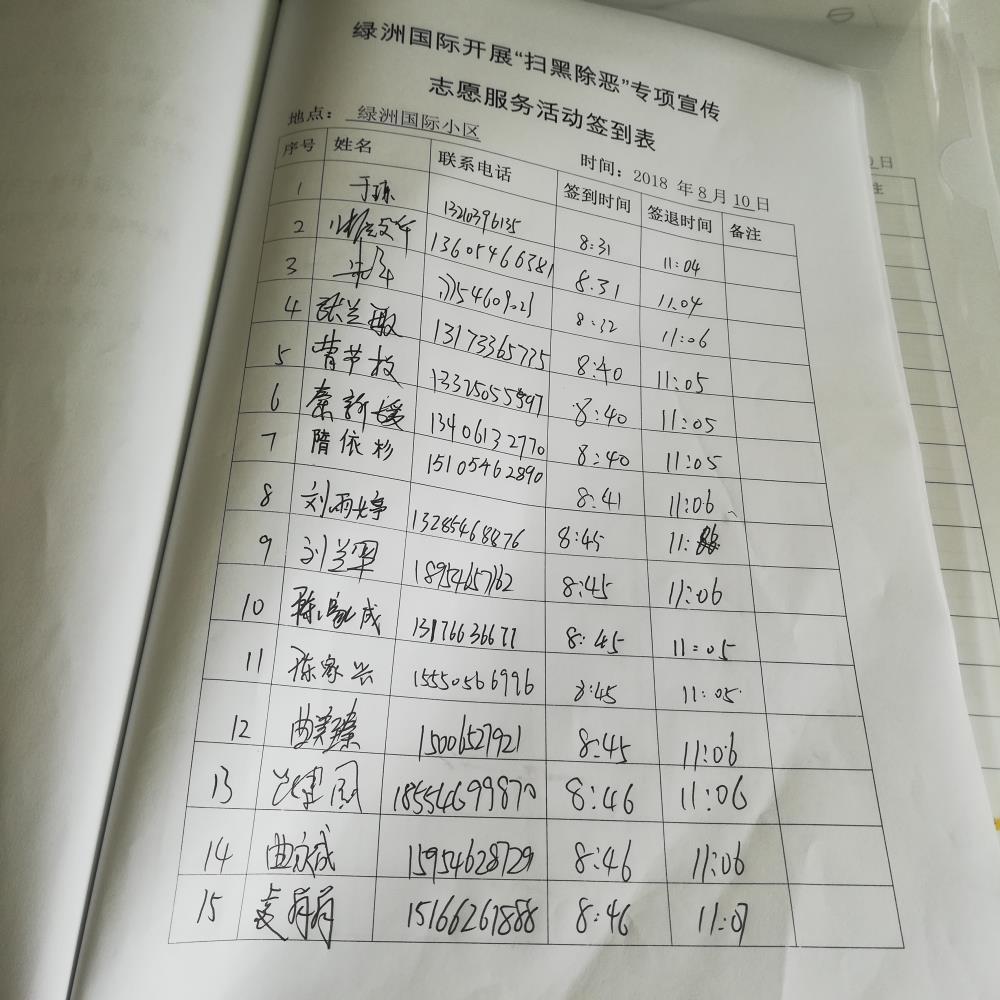 绿洲国际开展“扫黑除恶”专项宣传
志愿服务活动签到表
地点：绿洲国际小区 时间：2018 年 8 月 10 日
序号 姓名 联系电话 签到时间 签退时间 备注
1 于琼 8:31 11:04
2 13605466381 8:31 11:04
3 8:32 11:06
4 张兰敏 13173365775 8:40 11:05
5 曹节枝 8:40 11:05
6 秦新媛 13406132770 8:40 11:05
7 隋依杉 15105462890 8:41 11:06
8 刘雨婷 13285468876 8:45 11:
9 刘兰军 18954657162 8:45 11:06
10 成 13176636677 8:45 11:05
11 陈家兴 15550566996 8:45 11:05
12 曲美臻 15006527921 8:45 11:06
13 18554699870 8:46 11:06
14 曲永成 15954628729 8:46 11:06
15 15166261888 8:46 11:07
日
注